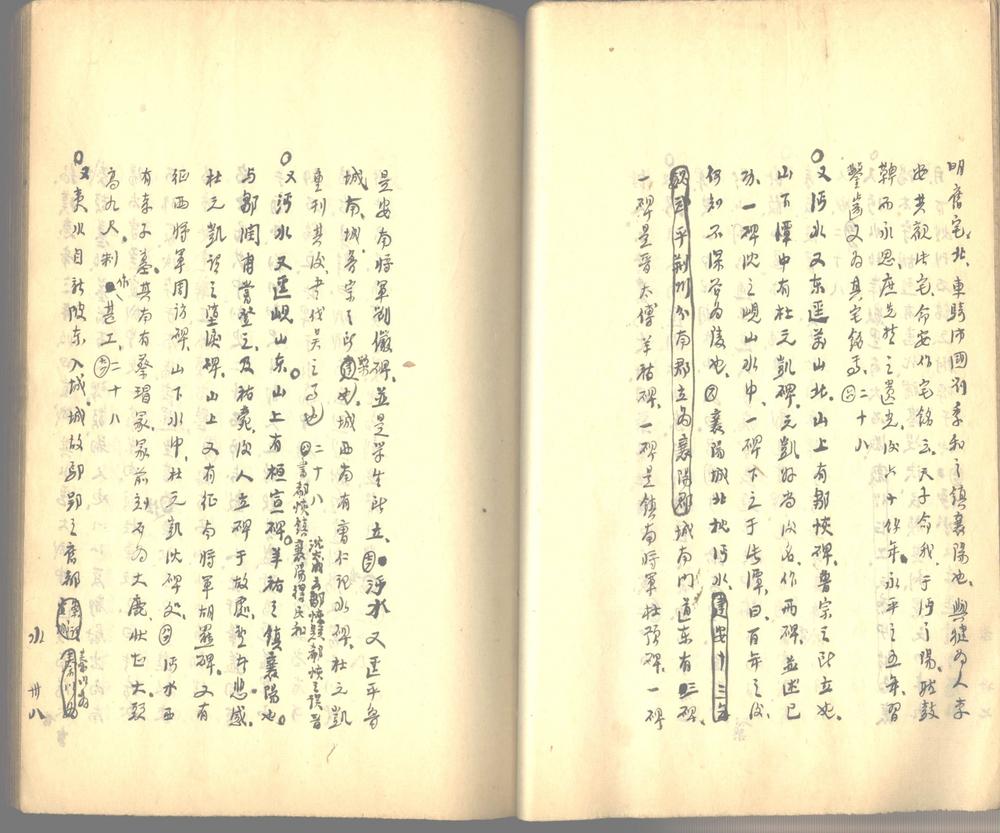 明舊宅北、車騎沛國劉季和之鎮襄陽也、與犍為人李
安共觀此宅、命安作宅銘云、天子命我、于沔之陽、聽鼓
鞞而永思、庶先哲之遺光、後六十餘年、永平之五年、習
鑿齒又為其宅銘焉、二十八
○又沔水又東逕萬山北、山上有鄒恢碑、魯宗之所立也、
山下潭中有杜元凱碑、元凱好尚後名、作兩碑、並述己
功、一碑沈之峴山水中、一碑下之于此潭、曰、百年之後
何知不深谷為陵也、又襄陽城北枕沔水、建安十三年
魏武平荊州分南郡立為襄陽郡城南門道東有三碑、
一碑是晉太傅羊祜碑、一碑是鎮南將軍杜預碑、一碑
是安南將軍劉儼碑、並是學生所立、沔水又逕平魯
城南、城魯宗之所築也、城西南有曹仁記水碑、杜元凱
重刊其後、書伐吳之事也 二十八
○又沔水又逕峴山東、山上有桓宣碑、羊祜之鎮襄陽也、
与鄒潤甫嘗登之、及祜薨、後人立碑于故處、望者悲感、
杜元凱謂之墮淚碑、山上又有征南將軍胡羆碑、又有
征西將軍周訪碑、山下水中、杜元凱沈碑處、沔水西
有孝子墓、其南有蔡瑁冢、冢前刻石為大鹿、狀甚大、頭
高九尺、制作甚工、二十八
○又夷水自新陂東入城、城故鄢郢之舊都
水 卅八